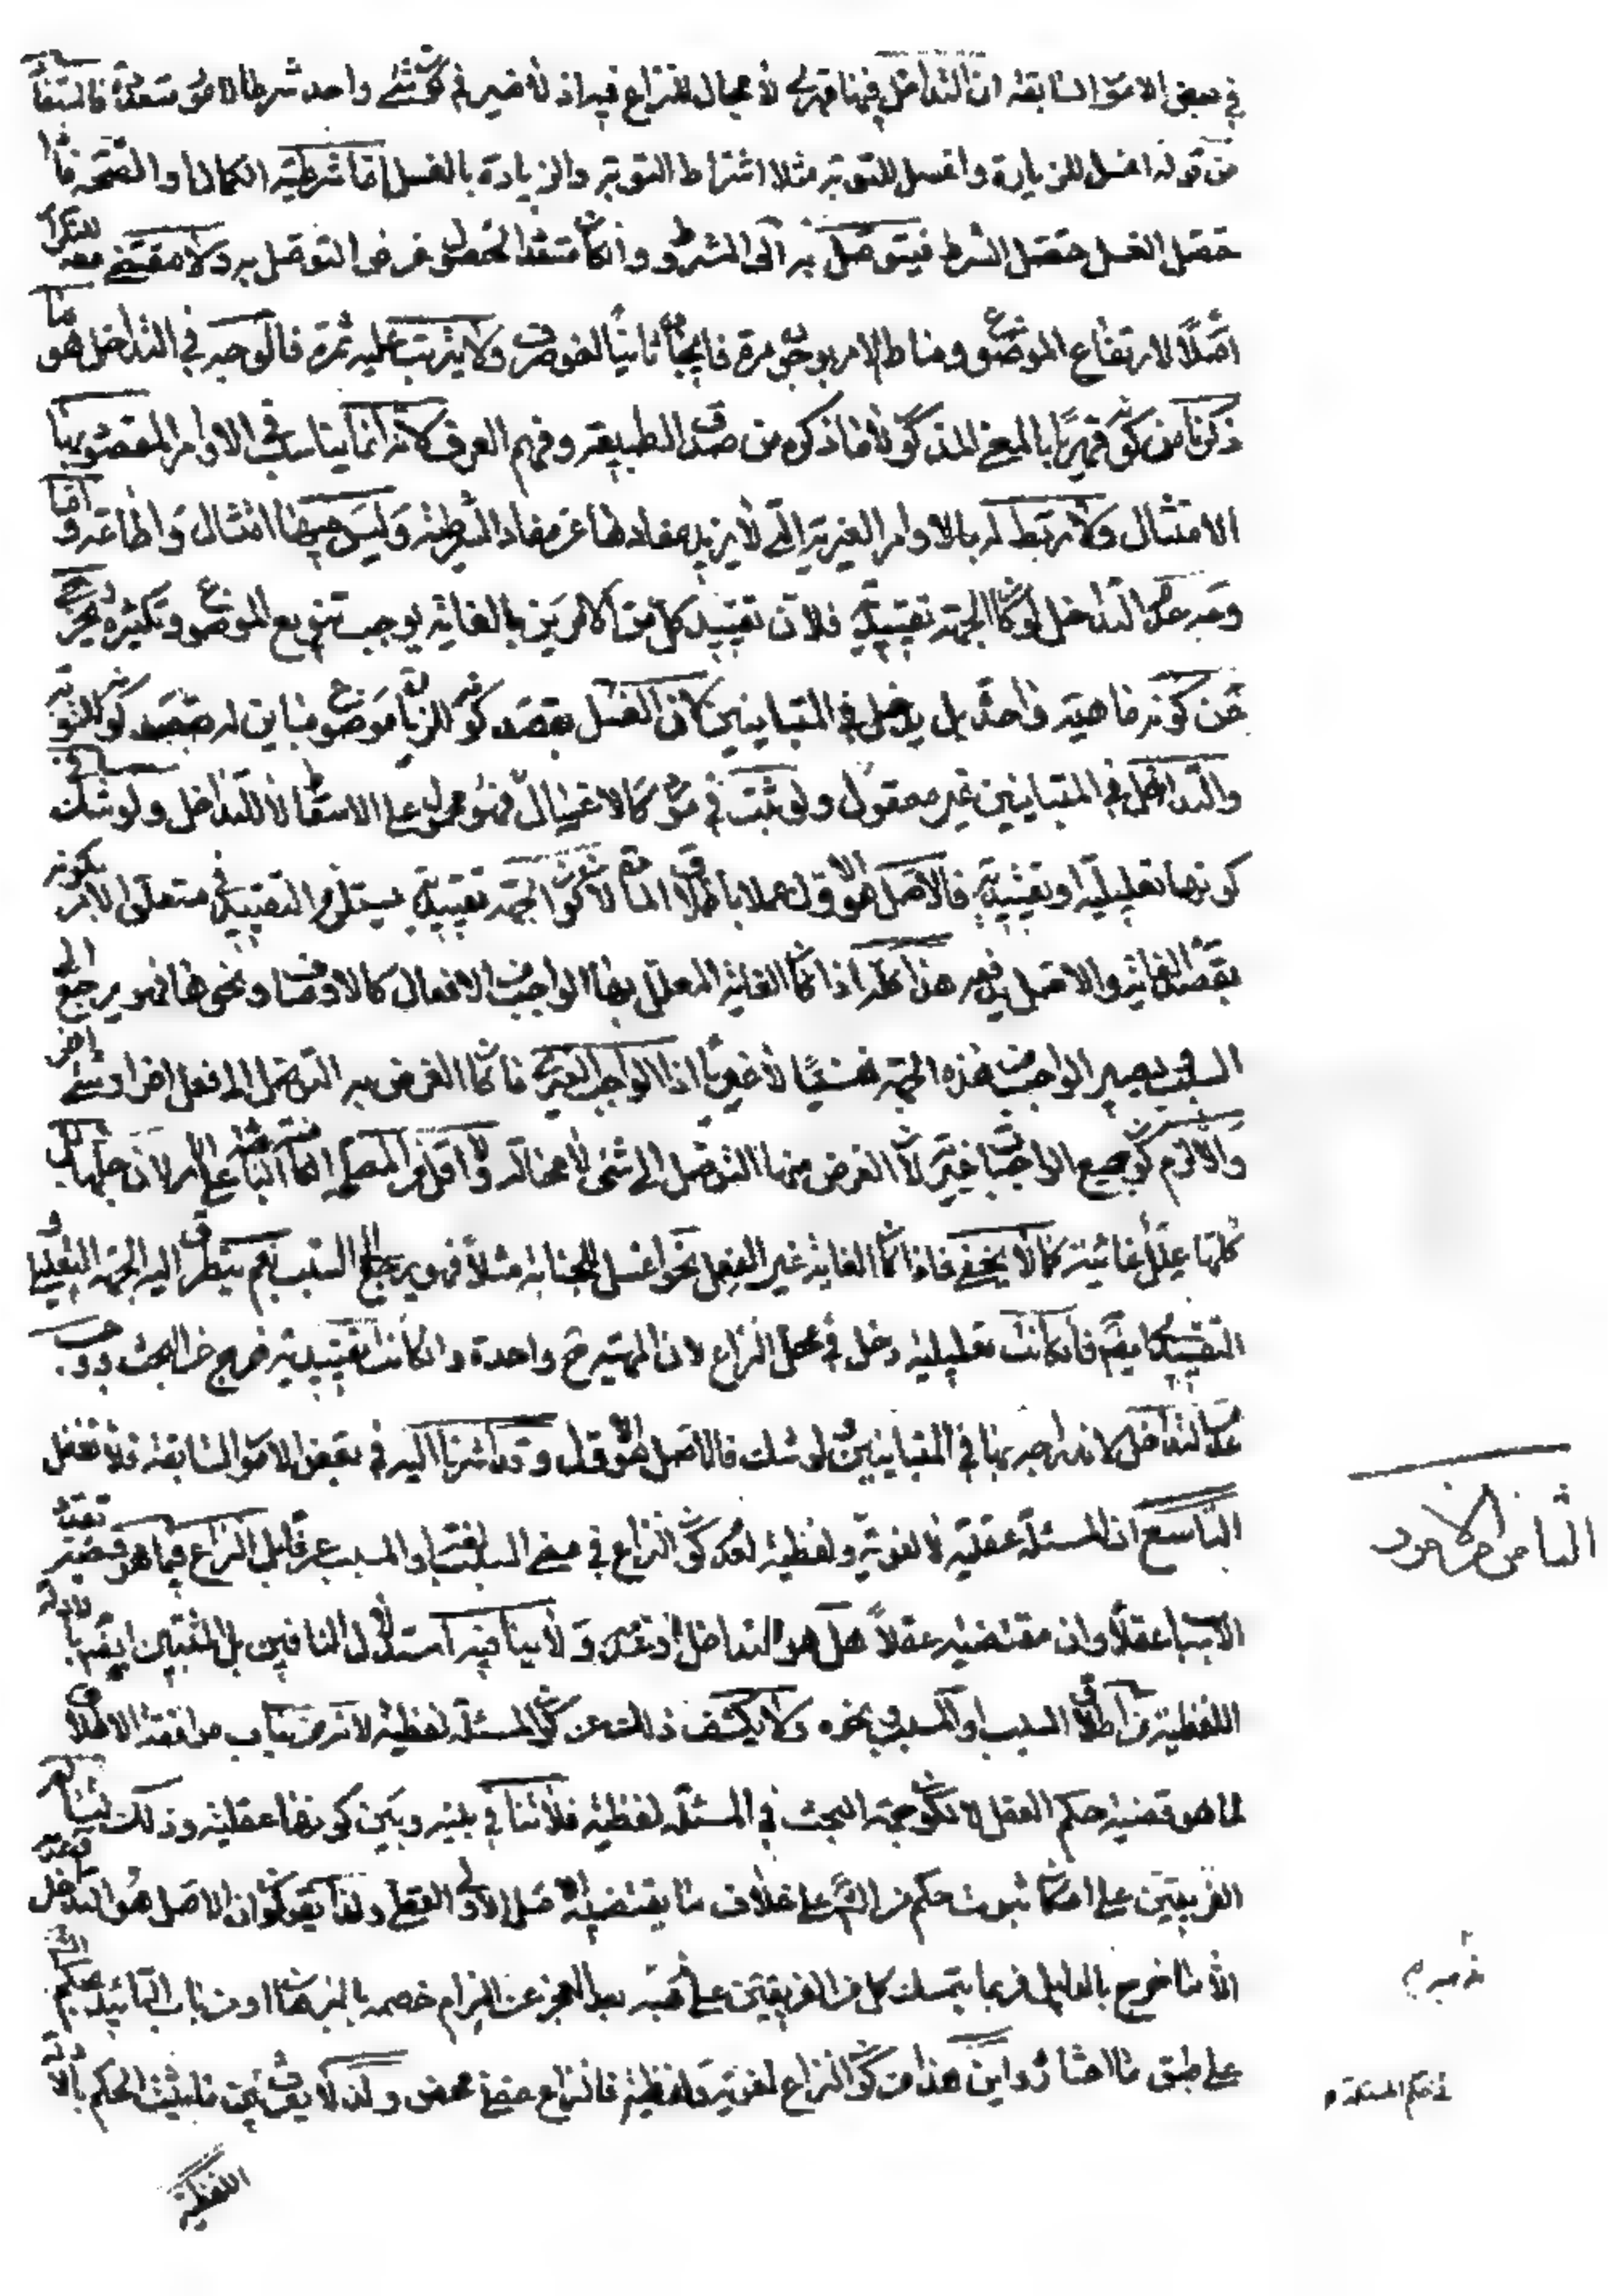 في بعض الامور السابقة ان التداخل فيها قهري لا مجال للنزاع فيه اذ لا ضير في كون شئ واحد شرطا لامور متعددة فالمستفاد
من قوله اغسل للزيارة واغسل للتوبة مثلا اشتراط التوبة والزيارة بالغسل اما شرطية الكمال او الصحة فاذا
حصل الغسل حصل الشرط فيتوصل به الى المشروط وان كان متعددا لحصول غرض التوصل به ولا مقتضى معه للتكرار
اصلا لارتفاع الموضوع ومناط الامر بوجوده مرة فايجابه ثانيا لغو صرف ولا يترتب عليه ثمرة فالوجه في التداخل هو ما
ذكرنا من كونه قهريا بالمعنى المذكور لا ما ذكره من صدق الطبيعة وفهم العرف لانه انما يناسب في الاوامر المقصود بها
الامتثال ولا ربط له بالاوامر الغيرية التي لا يزيد مفادها عن مفاد الشرطية وليس فيها امتثال واطاعة واما
وجه عدم التداخل لو كان الجهة تقييدية فلان تقييد كل من الامرين بالغاية يوجب تنويع الموضوع وتكثيره فيخرج
عن كونه ماهية واحدة بل يدخل في المتباينين لان الغسل بقصد كونه للزيارة موضوع مباين له بقصد كونه للتوبة
والتداخل في المتباينين غير معقول ولو ثبت في مورد كالاغسال فهو محمول على الاسقاط لا للتداخل ولو شك في
كونها تعليلية او تقييدية فالاصل هو الاول عملا باطلاق المادة لان كون الجهة تقييدية يستلزم التقييد في متعلق الامر بكونه
بقصد الغاية والاصل عدمه هذا كله اذا كان الغاية المعلل بها الواجب من الافعال كالاوصاف ونحوها فهو يرجع الى
السبب يصير الواجب من هذه الجهة نفسيا لا غيريا اذ الواجب الغيري ما كان الغرض به التوصل الى فعل اخر او شئ اخر
والا لزم كون جميع الواجبات غيرية لان الغرض منها التوصل الى شئ لا محالة واقله المصلحة الباعثة على الامر لان جلها بل
كلها علل غائية كما لا يخفى فاذا كان الغاية غير الفعل نحو اغسل للجنابة مثلا فهو يرجع الى السبب نعم يتطرق اليه الجهة التعليلية و
التقييدية ايضا فان كانت تعليلية دخل في محل النزاع لان المهية ح واحدة وان كانت تقييدية خرج عن البحث ووجب
عدم التداخل لاندراجه بها في المتباينين ولو شك فالاصل هو الاول وقد اشرنا اليه في بعض الامور السابقة فلا تغفل
التاسع ان المسئلة عقلية لا لغوية ولفظية لعدم كون النزاع في معنى السبب لغة او المسبب عرفا بل النزاع فيما هو قضية تعدد
الاسباب عقلا وان مقتضيه عقلا هل هو التداخل او عدمه ولا ينافيه استدلال النافين بل المثبتين ايضا بالادلة
اللفظية من اطلاق السبب او المسبب ونحوه ولا يكشف ذلك عن كون المسئلة لفظية لانه من باب موافقة الاطلاق
لما هو قضية حكم العقل لا لكون جهة البحث في المسئلة لفظية فلا تنافي بينه وبين كونها عقلية وذلك لبناء
الفريقين على امكان ثبوت حكم من الشرع على خلاف ما يقتضيه الاصل الاولى العقلى ولذا يقولون ان الاصل هو التداخل
الا ما خرج بالدليل فربما يتمسك كل من الفريقين على مذهبه بعد العجز عن الزام خصمه بالبرهان او من باب التأييد بحكم الشرع
على طبق ما اختاره واين هذا من كون النزاع لغوية ولفظية فالنزاع عقلي محض ولذا لا يفرق بين ما يثبت الحكم بالادلة
اللفظية
الثامن
في حكم المسئلة م